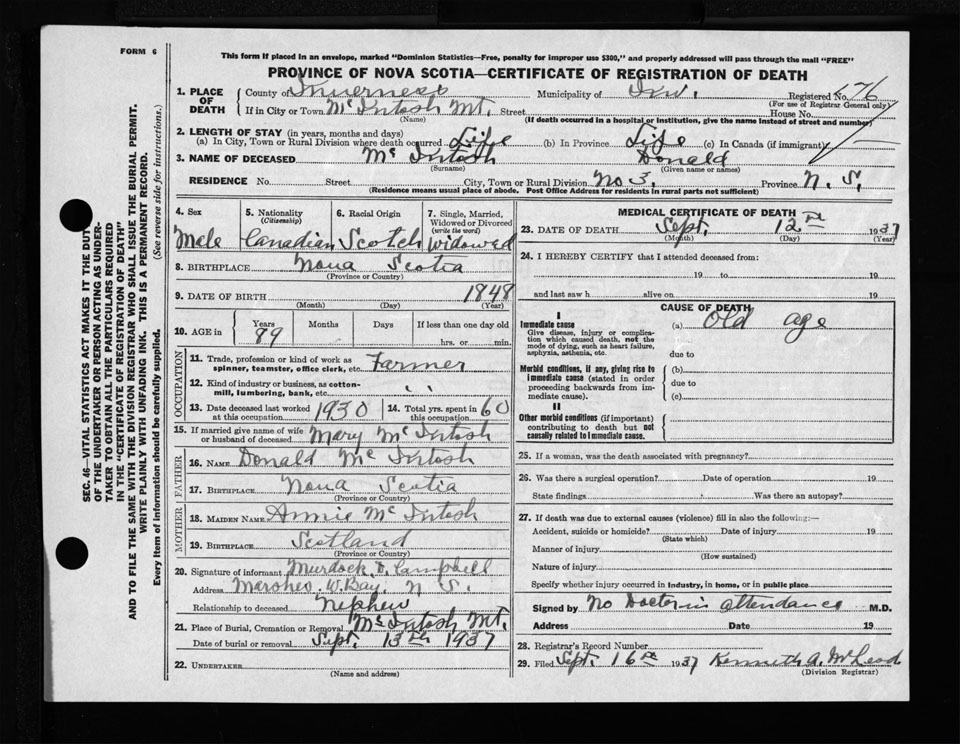 FORM 6
This form if placed in an envelope, marked "Dominion Statistics—Free, penalty for improper use $300," and properly addressed will pass through the mail "FREE"
PROVINCE OF NOVA SCOTIA—CERTIFICATE OF REGISTRATION OF DEATH
1. PLACE OF DEATH
County of Inverness Municipality of Inv. Registered No. 76
(For use of Registrar General only)
If in City or Town McIntosh Mt. Street House No.
(Name) (If death occurred in a hospital or institution, give the name instead of street and number)
2. LENGTH OF STAY (in years, months and days)
(a) In City, Town or Rural Division where death occurred Life (b) In Province Life (c) In Canada (if immigrant)
3. NAME OF DECEASED McIntosh Donald
(Surname) (Given name or names)
RESIDENCE No. Street City, Town or Rural Division No 3. Province N. S.
(Residence means usual place of abode. Post Office Address for residents in rural parts not sufficient)
4. Sex
Male
5. Nationality (Citizenship)
Canadian
6. Racial Origin
Scotch
7. Single, Married, Widowed or Divorced (write the word)
Widowed
8. BIRTHPLACE Nova Scotia
(Province or Country)
9. DATE OF BIRTH 1848
(Month) (Day) (Year)
10. AGE in Years Months Days If less than one day old
89 hrs. or min.
OCCUPATION
11. Trade, profession or kind of work as spinner, teamster, office clerk, etc. Farmer
12. Kind of industry or business, as cotton-mill, lumbering, bank, etc. " "
13. Date deceased last worked at this occupation 1930
14. Total yrs. spent in this occupation 60
15. If married give name of wife or husband of deceased Mary McIntosh
FATHER
16. NAME Donald McIntosh
17. BIRTHPLACE Nova Scotia
(Province or Country)
MOTHER
18. MAIDEN NAME Annie McIntosh
19. BIRTHPLACE Scotland
(Province or Country)
20. Signature of informant Murdock D. Campbell
Address Marshes W. Bay, N S.
Relationship to deceased Nephew
21. Place of Burial, Cremation or Removal McIntosh Mt.
Date of burial or removal Sept. 13th 1937
22. UNDERTAKER
(Name and address)
MEDICAL CERTIFICATE OF DEATH
23. DATE OF DEATH Sept. 12th 1937
(Month) (Day) (Year)
24. I HEREBY CERTIFY that I attended deceased from:
19 to 19
and last saw h alive on 19
CAUSE OF DEATH
I
Immediate cause
Give disease, injury or complication which caused death, not the mode of dying, such as heart failure, asphyxia, asthenia, etc.
(a) Old age
due to
Morbid conditions, if any, giving rise to immediate cause (stated in order proceeding backwards from immediate cause).
(b)
due to
(c)
II
Other morbid conditions (if important) contributing to death but not causally related to immediate cause.
25. If a woman, was the death associated with pregnancy?
26. Was there a surgical operation? Date of operation 19
State findings Was there an autopsy?
27. If death was due to external causes (violence) fill in also the following:—
Accident, suicide or homicide? Date of injury 19
(State which)
Manner of injury
(How sustained)
Nature of injury
Specify whether injury occurred in industry, in home, or in public place
Signed by No Doctor in attendance M.D.
Address Date 19
28. Registrar's Record Number
29. Filed Sept. 16th 1937 Kenneth A. McLeod
(Division Registrar)
SEC. 46—VITAL STATISTICS ACT MAKES IT THE DUTY
OF THE UNDERTAKER OR PERSON ACTING AS UNDER-
TAKER TO OBTAIN ALL THE PARTICULARS REQUIRED
IN THE "CERTIFICATE OF REGISTRATION OF DEATH"
AND TO FILE THE SAME WITH THE DIVISION REGISTRAR WHO SHALL ISSUE THE BURIAL PERMIT.
WRITE PLAINLY WITH UNFADING INK. THIS IS A PERMANENT RECORD.
Every item of information should be carefully supplied. (See reverse side for instructions.)